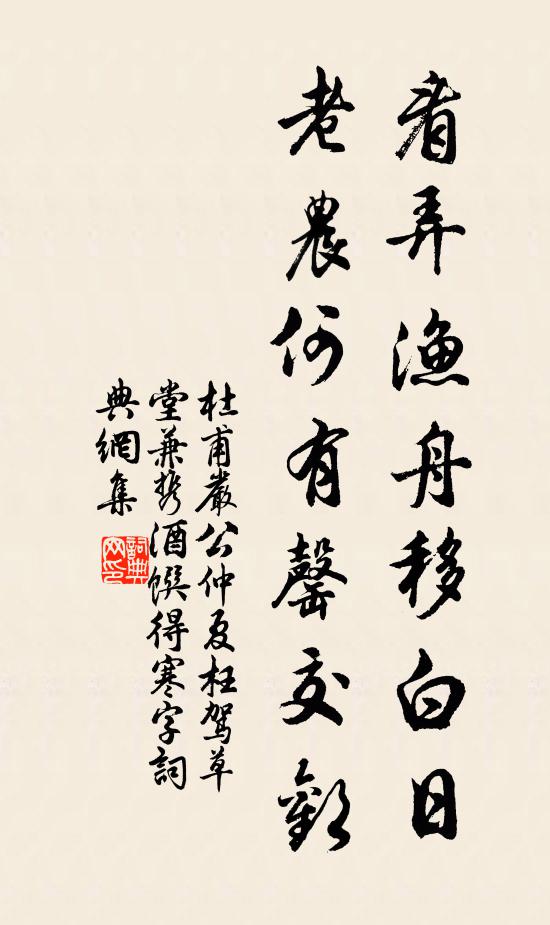 看弄漁舟移白日
老農何有罄交歡
杜甫嚴公仲夏枉駕草
堂兼攜酒饌得寒字詞
典網集
詞典网印